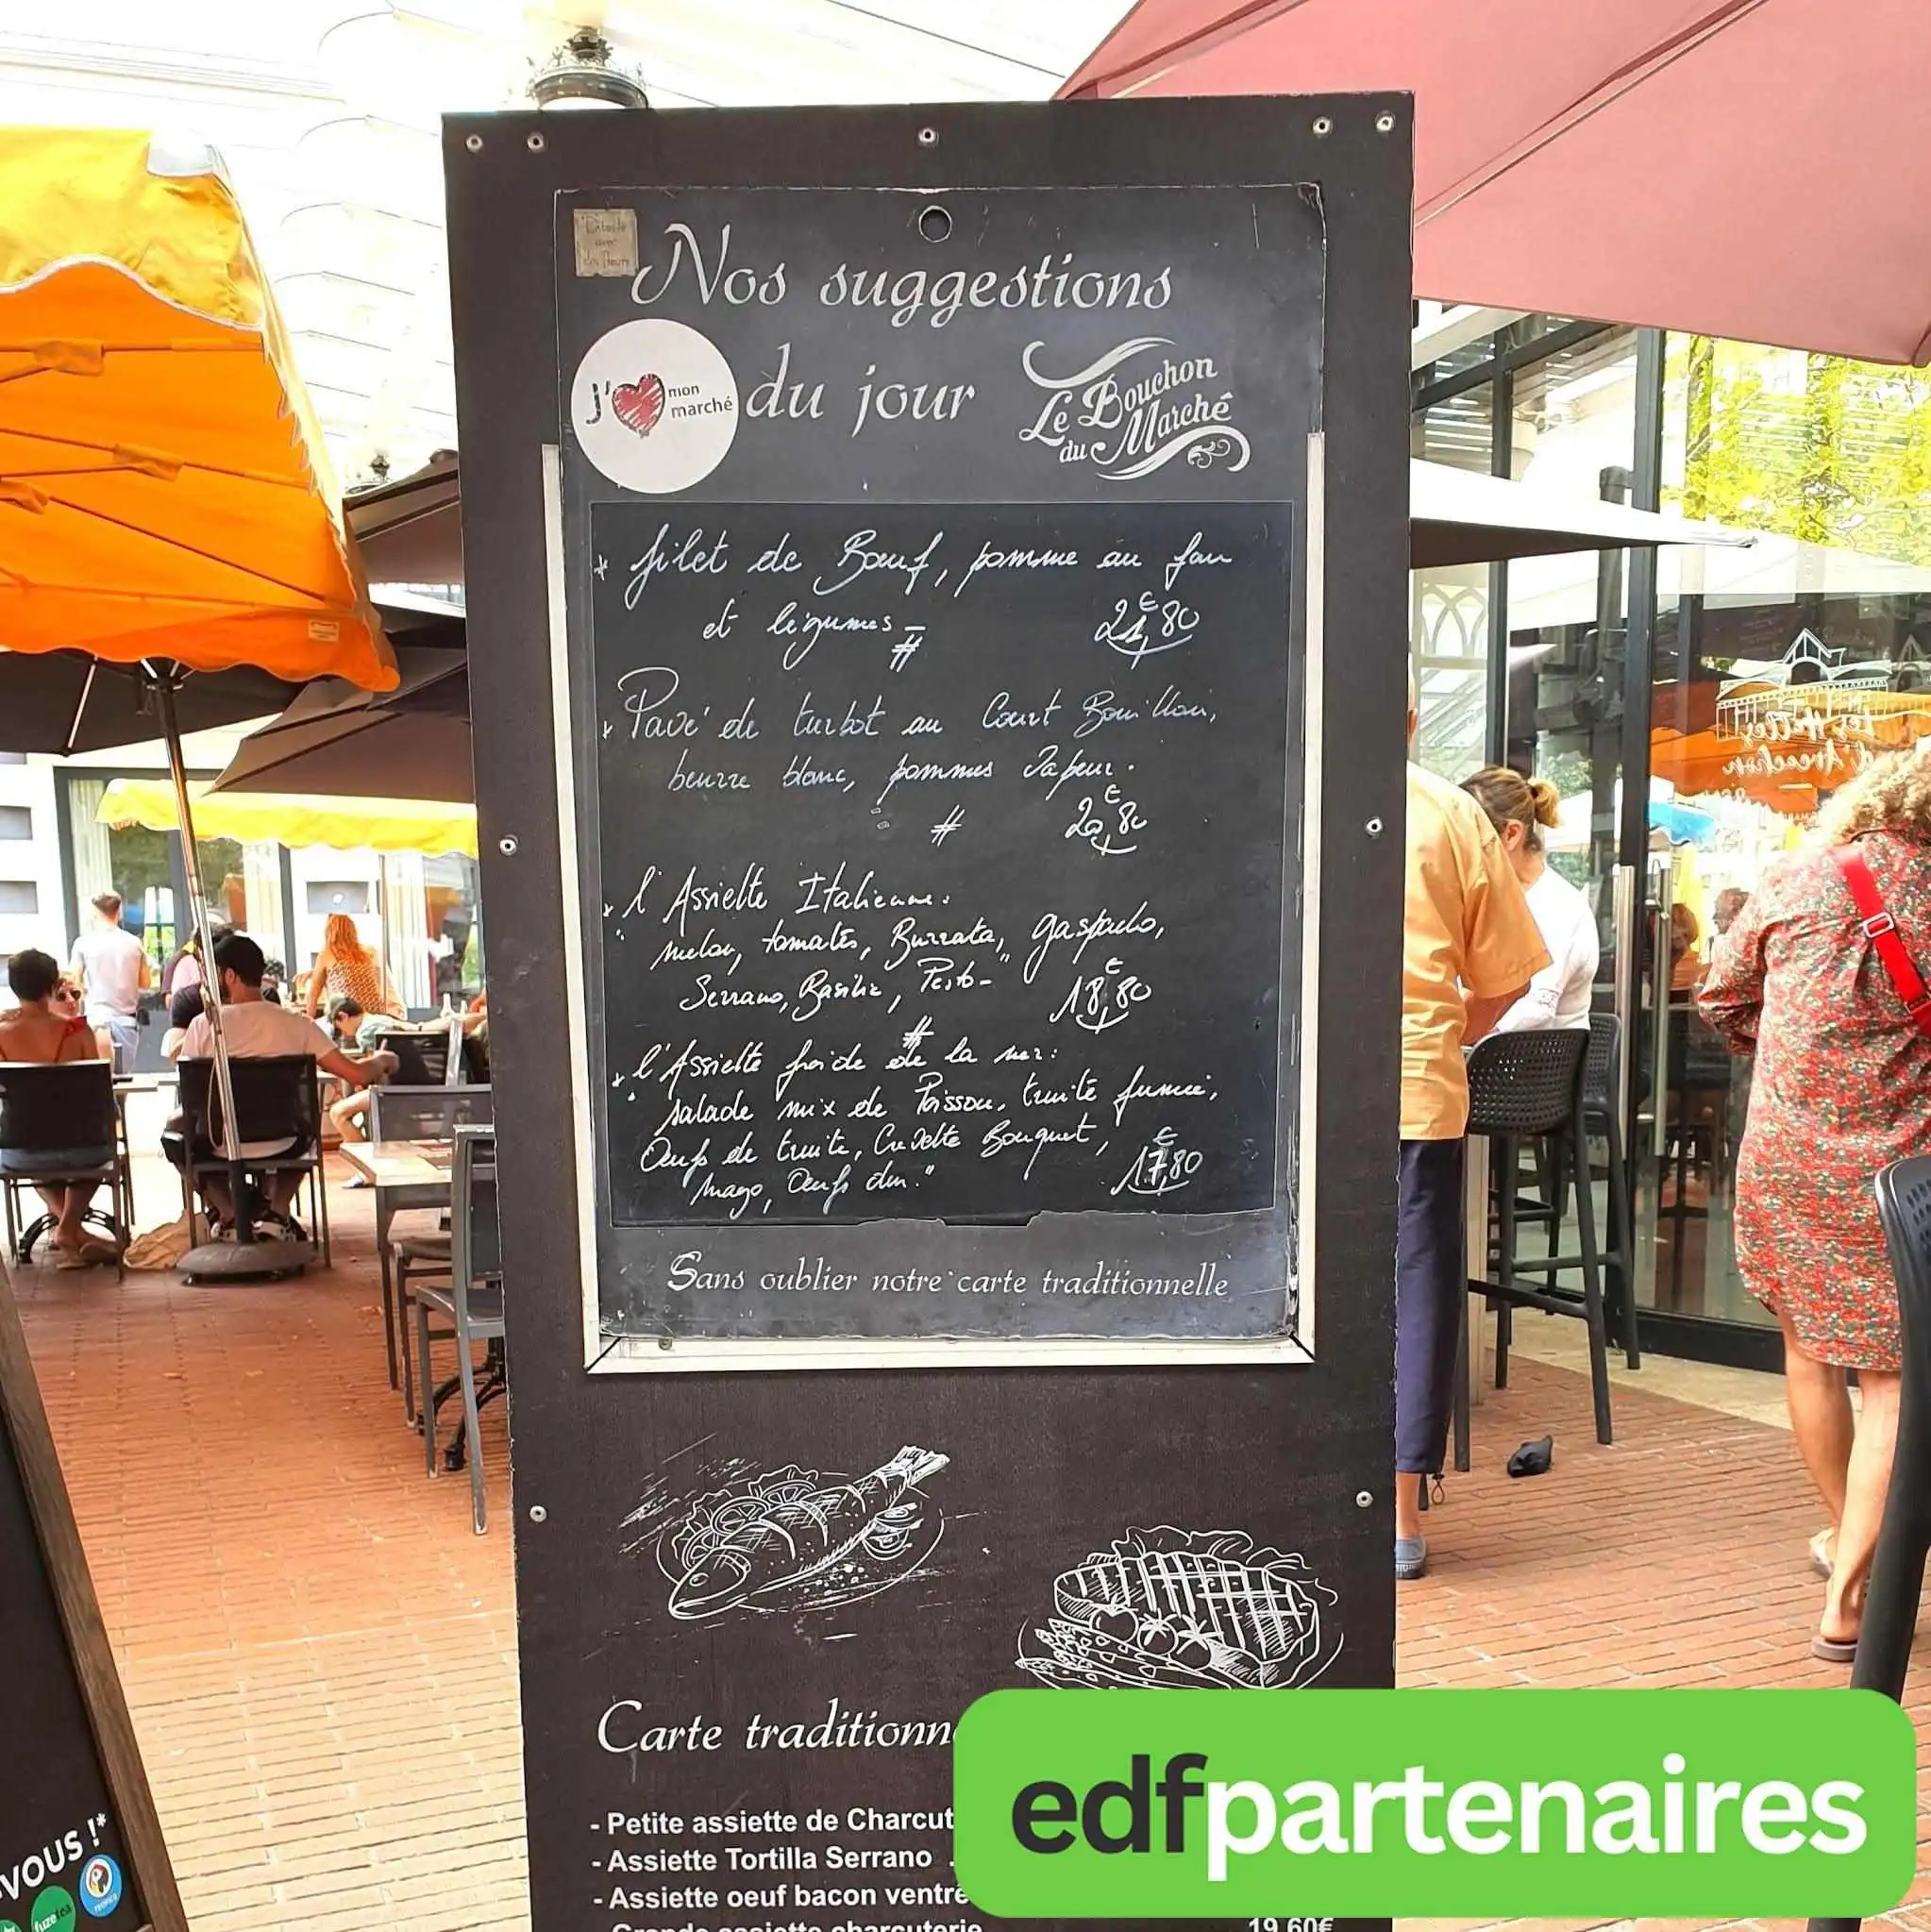 Nos suggestions
J'❤ mon marché
du jour
Le Bouchon
du Marché
* filet de Bœuf, pomme au four
et légumes - 21,80€
#
* Pavé de turbot au Court Bouillon,
beurre blanc, pommes Vapeur.
# 20,80€
* l'Assiette Italienne:
"melon, tomates, Burrata, gaspacho,
Serrano, Basilic, Pesto-" 18,80€
#
* l'Assiette froide de la mer:
"salade mix de Poisson, truite fumée,
Œufs de truite, Crevette Bouquet,
mayo, Œufs dur." 17,80€
Sans oublier notre carte traditionnelle
Carte traditionn
- Petite assiette de Charcut
- Assiette Tortilla Serrano .
- Assiette oeuf bacon ventrè
Grande assiette charcuterie 19,60€
-VOUS !*
fuzetea
Les Halles
d'Arcachon
edfpartenaires